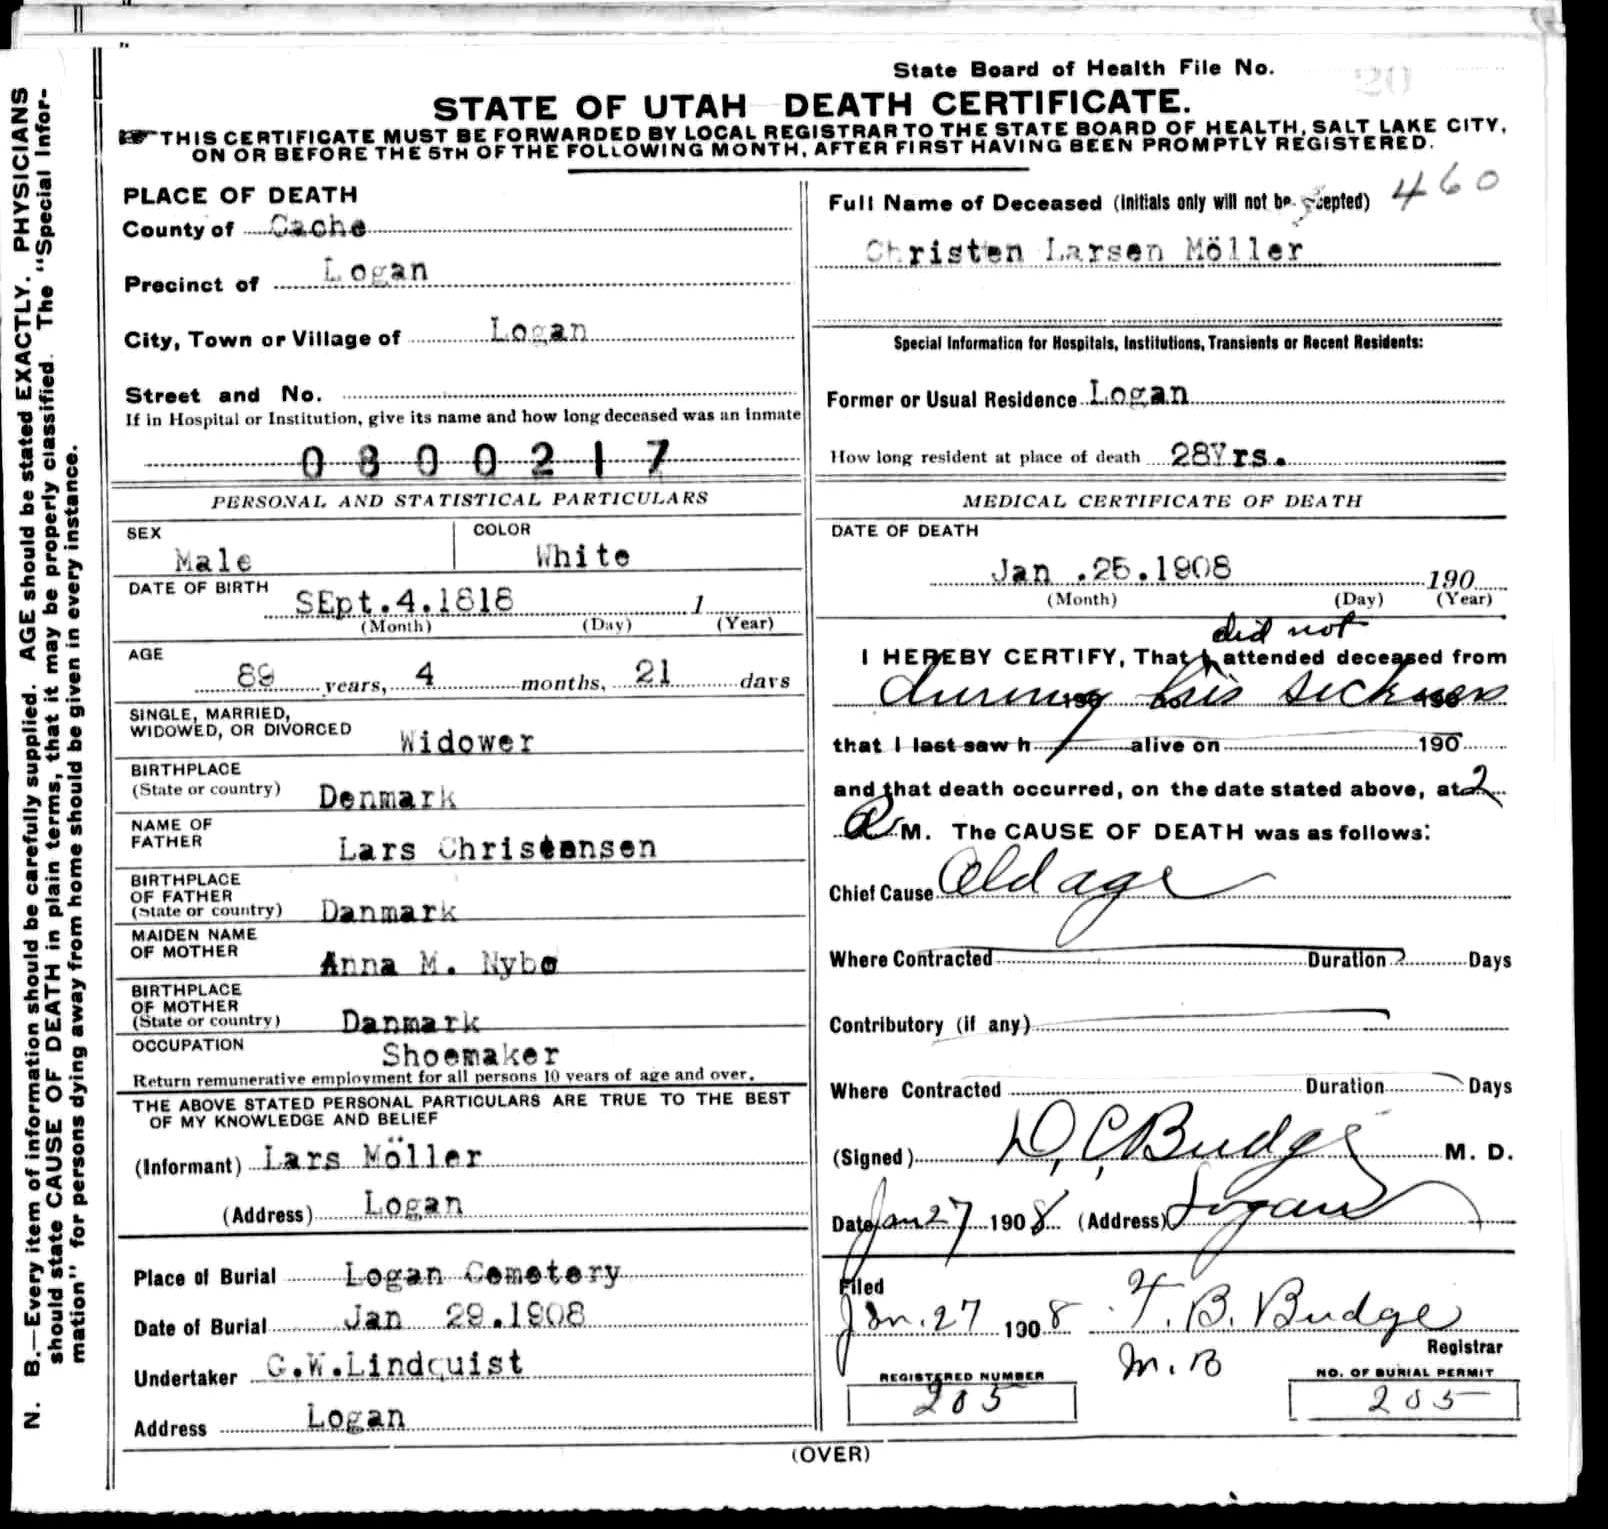 State Board of Health File No.
20
STATE OF UTAH DEATH CERTIFICATE.
THIS CERTIFICATE MUST BE FORWARDED BY LOCAL REGISTRAR TO THE STATE BOARD OF HEALTH, SALT LAKE CITY,
ON OR BEFORE THE 5TH OF THE FOLLOWING MONTH, AFTER FIRST HAVING BEEN PROMPTLY REGISTERED.
N. B.—Every item of information should be carefully supplied. AGE should be stated EXACTLY. PHYSICIANS
should state CAUSE OF DEATH in plain terms, that it may be properly classified. The "Special Infor-
mation" for persons dying away from home should be given in every instance.
PLACE OF DEATH
County of Cache
Precinct of Logan
City, Town or Village of Logan
Street and No.
If in Hospital or Institution, give its name and how long deceased was an inmate
0800217
PERSONAL AND STATISTICAL PARTICULARS
SEX COLOR
Male White
DATE OF BIRTH
SEpt.4.1818 1
(Month) (Day) (Year)
AGE
89 years, 4 months, 21 days
SINGLE, MARRIED,
WIDOWED, OR DIVORCED Widower
BIRTHPLACE
(State or country) Denmark
NAME OF
FATHER Lars Christensen
BIRTHPLACE
OF FATHER
(State or country) Danmark
MAIDEN NAME
OF MOTHER Anna M. Nybo
BIRTHPLACE
OF MOTHER
(State or country) Danmark
OCCUPATION Shoemaker
Return remunerative employment for all persons 10 years of age and over.
THE ABOVE STATED PERSONAL PARTICULARS ARE TRUE TO THE BEST
OF MY KNOWLEDGE AND BELIEF
(Informant) Lars Möller
(Address) Logan
Place of Burial Logan Cemetery
Date of Burial Jan 29.1908
Undertaker G.W.Lindquist
Address Logan
Full Name of Deceased (Initials only will not be accepted) 460
Christen Larsen Möller
Special Information for Hospitals, Institutions, Transients or Recent Residents:
Former or Usual Residence Logan
How long resident at place of death 28Yrs.
MEDICAL CERTIFICATE OF DEATH
DATE OF DEATH
Jan .25.1908 190
(Month) (Day) (Year)
did not
I HEREBY CERTIFY, That I attended deceased from
during his sickness 190
that I last saw h alive on 190
and that death occurred, on the date stated above, at 2
a M. The CAUSE OF DEATH was as follows:
Chief Cause Old age
Where Contracted Duration ? Days
Contributory (if any)
Where Contracted Duration Days
(Signed) D. C. Budge M. D.
Date Jan 27 1908 (Address) Logan
Filed
Jan. 27 1908 T. B. Budge
Registrar
M.B
REGISTERED NUMBER NO. OF BURIAL PERMIT
205 205
(OVER)